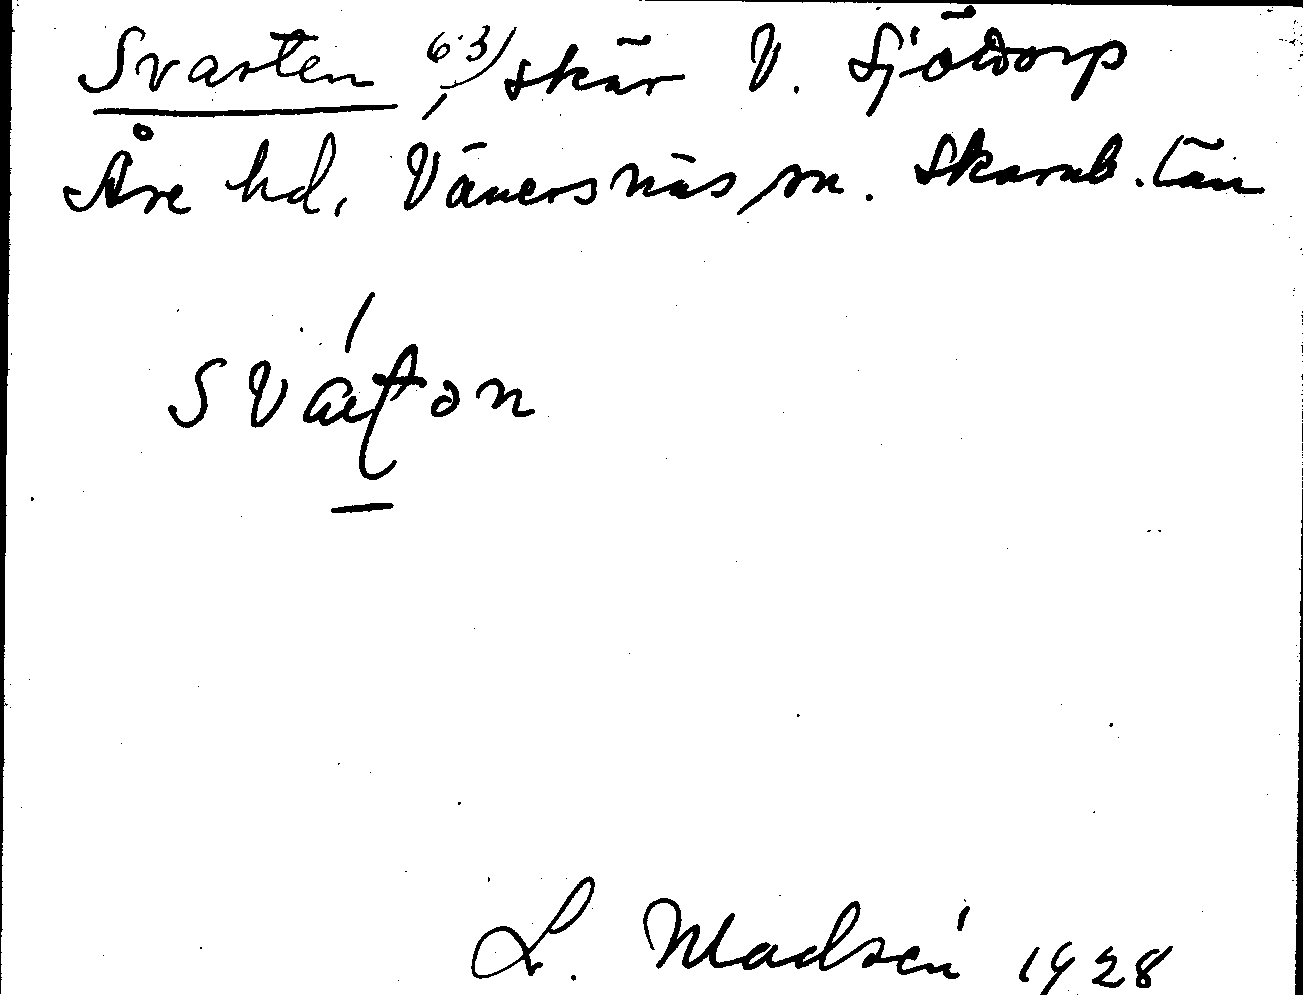 Svarten 63), skär V. Sjötorp
Åse hd, Vänersnäs sn. Skarab. län
sváton
L. Madsén 1928